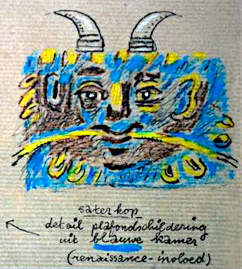 saterkop
detail plafondschildering
uit blauwe kamer
(renaissance-invloed)